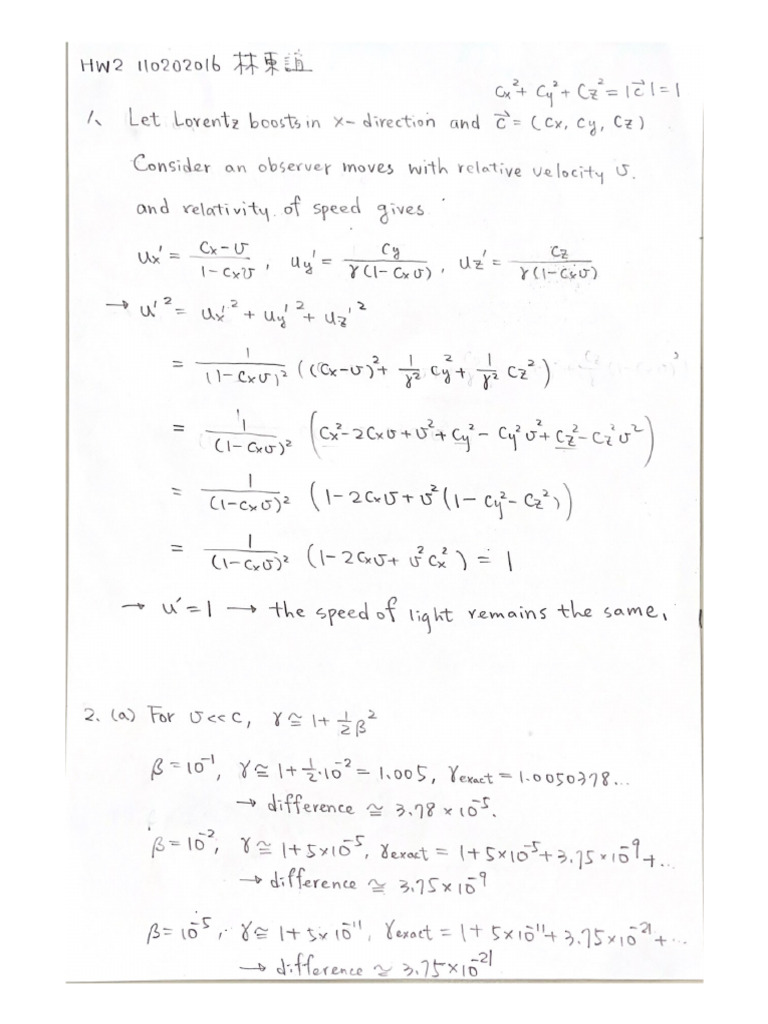 HW2 110202016 林東誼
Cx² + Cy² + Cz² = |c⃗| = 1
1、 Let Lorentz boosts in x-direction and c⃗ = (Cx, Cy, Cz)
Consider an observer moves with relative velocity υ.
and relativity of speed gives
ux' = (Cx-υ)/(1-Cxυ), uy' = Cy/(γ(1-Cxυ)), uz' = Cz/(γ(1-Cxυ))
→ u'² = ux'² + uy'² + uz'²
= 1/(1-Cxυ)² ((Cx-υ)² + 1/γ² Cy² + 1/γ² Cz²)
= 1/(1-Cxυ)² (Cx²-2Cxυ+υ²+Cy²-Cy²υ²+Cz²-Cz²υ²)
= 1/(1-Cxυ)² (1-2Cxυ+υ²(1-Cy²-Cz²))
= 1/(1-Cxυ)² (1-2Cxυ+υ²Cx²) = 1
→ u'=1 → the speed of light remains the same.
2. (a) For υ<<c, γ ≅ 1+½β²
β=10⁻¹, γ ≅ 1+½·10⁻² = 1.005, γexact = 1.0050378...
→ difference ≅ 3.78×10⁻⁵.
β=10⁻², γ ≅ 1+5×10⁻⁵, γexact = 1+5×10⁻⁵+3.75×10⁻⁹+...
→ difference ≅ 3.75×10⁻⁹
β=10⁻⁵, γ ≅ 1+5×10⁻¹¹, γexact = 1+5×10⁻¹¹+3.75×10⁻²¹+...
→ difference ≅ 3.75×10⁻²¹